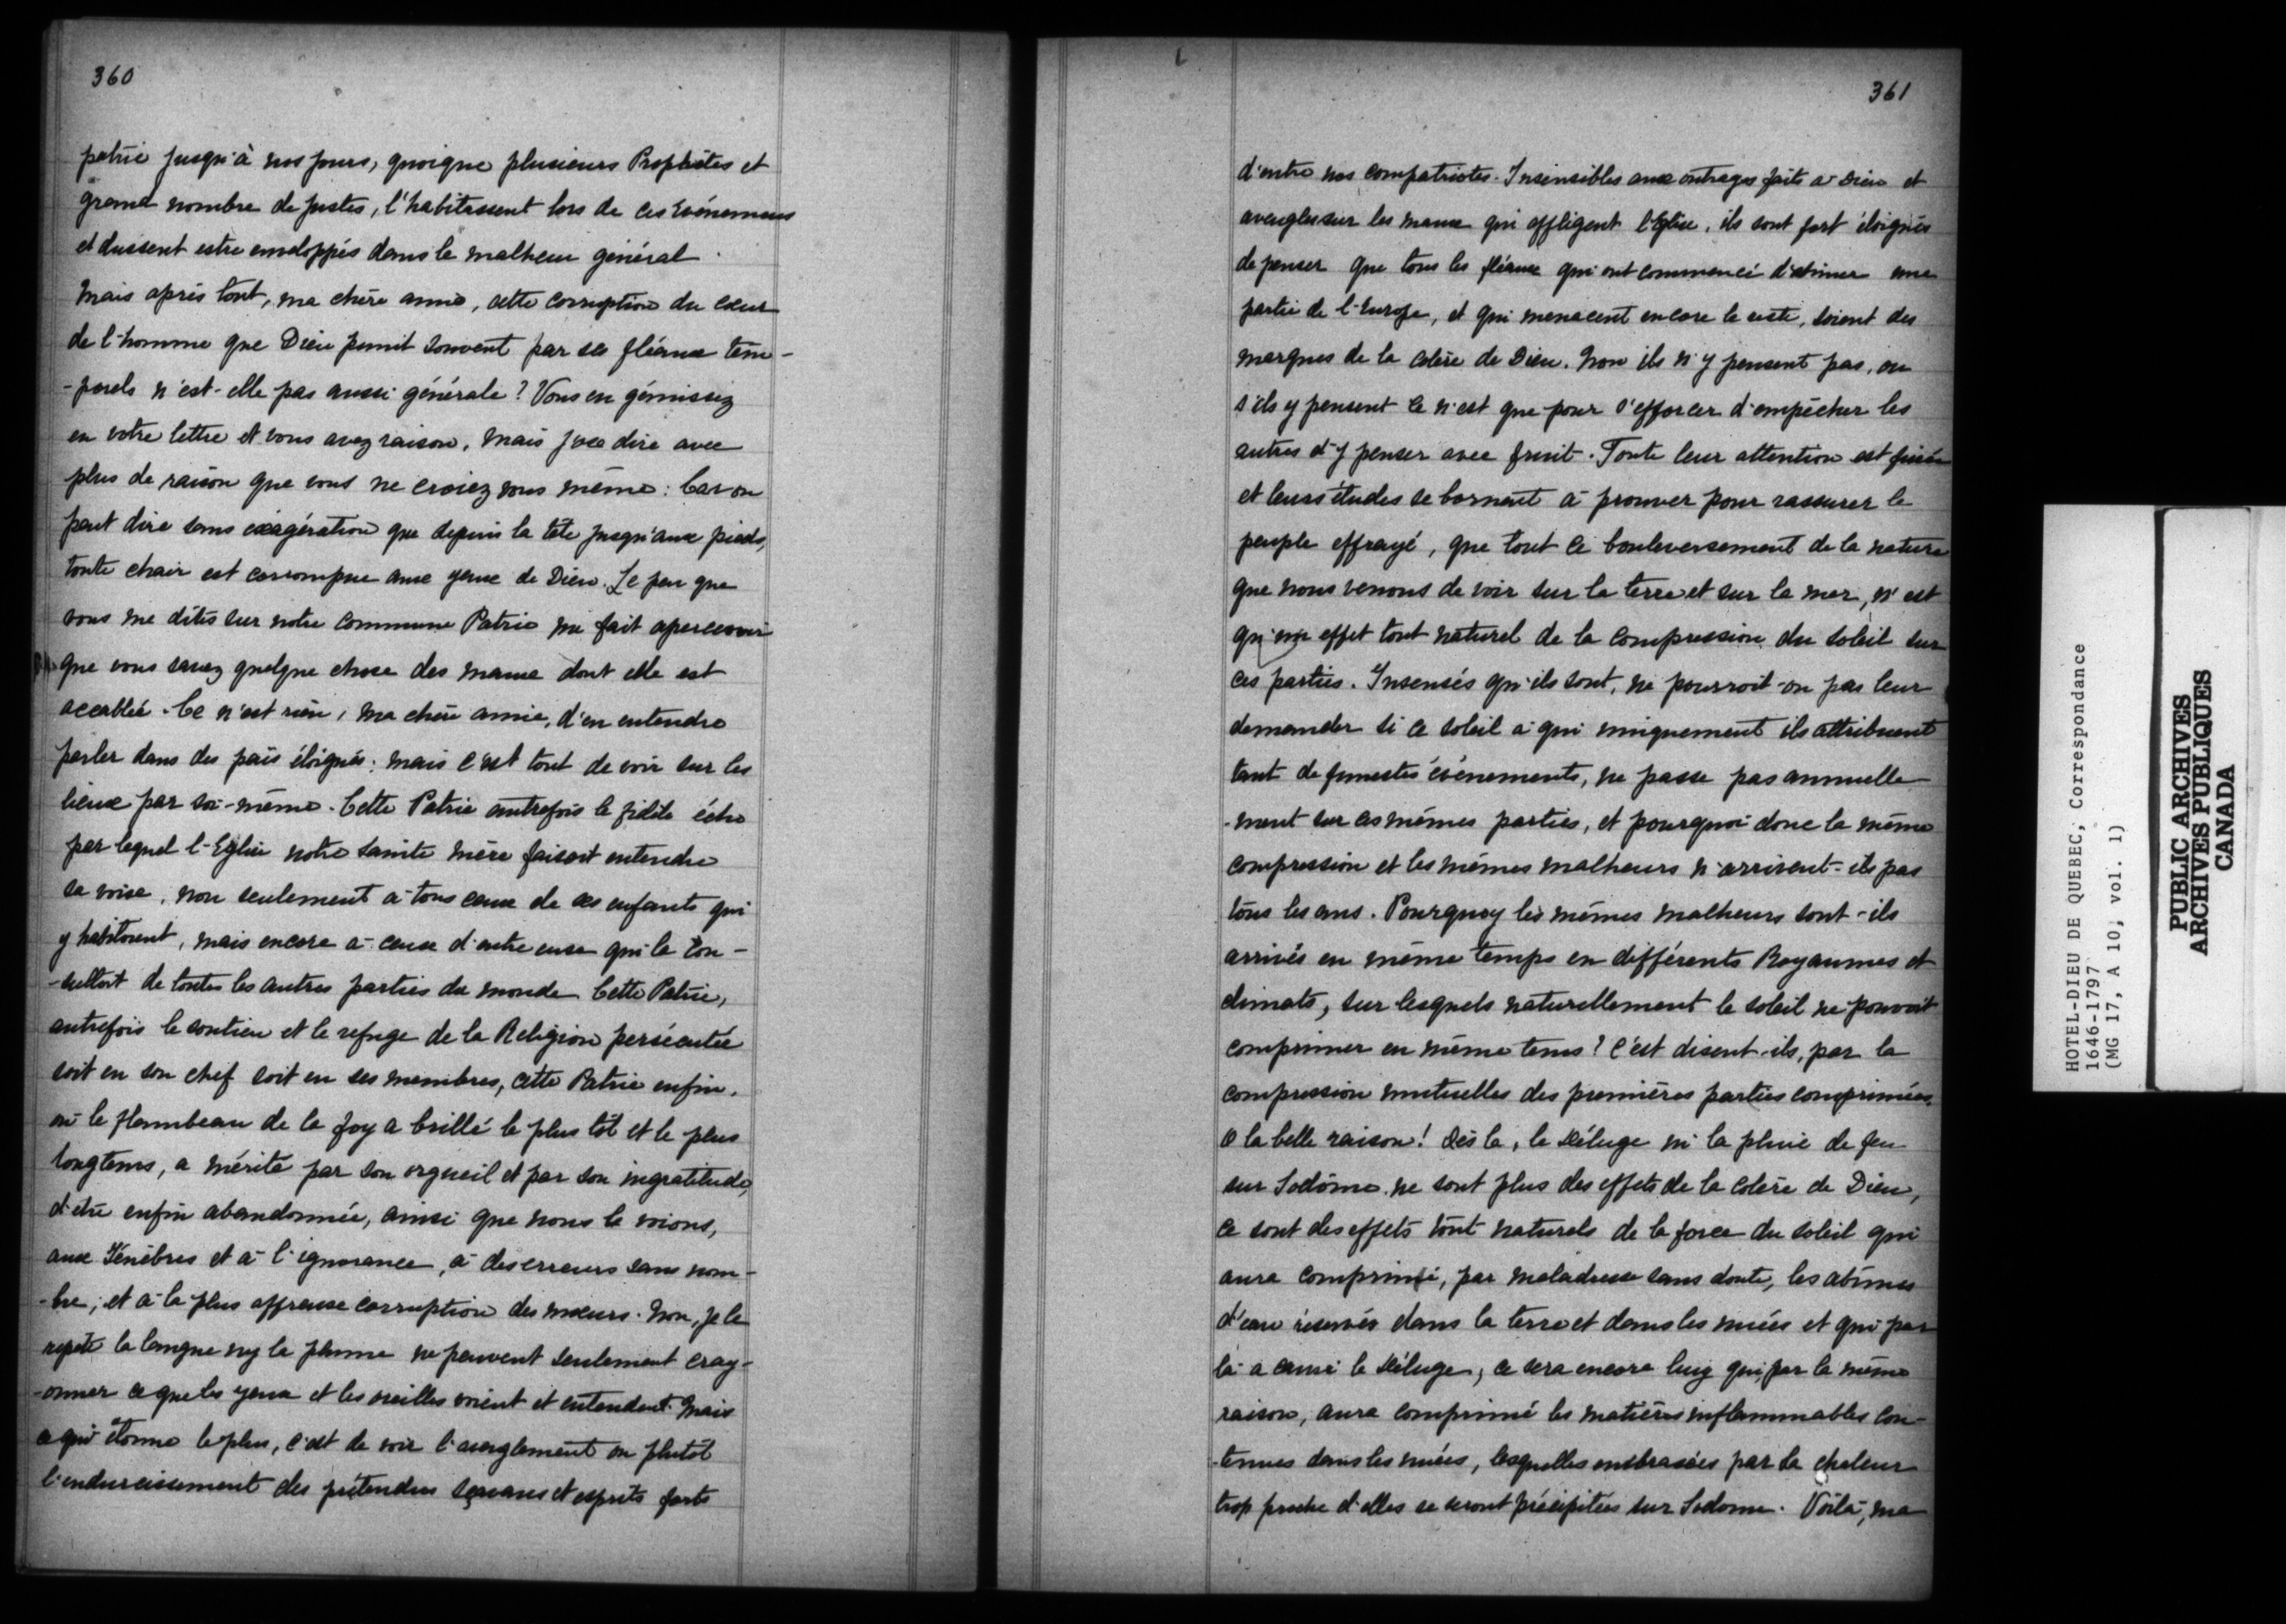 360
patrie jusqu'à nos jours, quoique plusieurs Prophètes et
grand nombre de justes, l'habitassent lors de ces Evénemens
et dussent estre enveloppés dans le malheur général
Mais après tout, ma chère amie, cette corruption du cœur
de l'homme que Dieu punit souvent par ses fléaux tem-
-porels n'est-elle pas aussi générale? Vous en gémissez
en votre lettre et vous avez raison, mais j'ose dire avec
plus de raison que vous ne croiez vous même: Car on
peut dire sans exagération que depuis la tête jusqu'aux pieds,
toute chair est corrompue aux yeux de Dieu. Le peu que
vous me dites sur notre commune Patrie me fait apercevoir
que vous savez quelque chose des maux dont elle est
accablée. Ce n'est rien, ma chère amie, d'en entendre
parler dans des païs éloignés; mais c'est tout de voir sur les
lieux par soi-même. Cette Patrie autrefois le fidèle écho
par lequel l'Eglise notre sainte mère faisoit entendre
sa voix, non seulement à tous ceux de ses enfants qui
y habitoient, mais encore à ceux d'entre eux qui la con-
-sultoit de toutes les autres parties du monde Cette Patrie,
autrefois le soutien et le refuge de la Religion persécutée
soit en son chef soit en ses membres, cette Patrie enfin,
où le flambeau de la foy a brillé le plus tôt et le plus
longtems, a mérité par son orgueil et par son ingratitude,
d'etre enfin abandonnée, ainsi que nous le voions,
aux Ténèbres et à l'ignorance, à des erreurs sans nom-
-bre; et à la plus affreuse corruption des mœurs. Non, je le
repete la langue ny la plume ne peuvent seulement cray-
-onner ce que les yeux et les oreilles voient et entendent. Mais
ce qui étonne le plus, c'est de voir l'aveuglement ou plutôt
l'endurcissement des prétendus sçavans et esprits forts
361
d'entre nos compatriotes. Insensibles aux outrages faits à Dieu et
aveugles sur les maux qui affligent l'Eglise, ils sont fort éloignés
de penser que tous les fléaux qui ont commencé d'abimer une
partie de l'Europe, et qui menacent encore le reste, soient des
marques de la colère de Dieu. Non ils n'y pensent pas, ou
s'ils y pensent ce n'est que pour s'efforcer d'empêcher les
autres d'y penser avec fruit. Toute leur attention est fixée
et leurs études se bornent à prouver pour rassurer le
peuple effrayé, que tout ce bouleversement de la nature
que nous venons de voir sur la terre et sur la mer, n'est
qu'un effet tout naturel de la compression du soleil sur
ces parties. Insensés qu'ils sont, ne pourroit-on pas leur
demander si ce soleil à qui uniquement ils attribuent
tant de funestes événements, ne passe pas annuelle-
-ment sur ces mêmes parties, et pourquoi donc la même
compression et les mêmes malheurs n'arrivent-ils pas
tous les ans. Pourquoy les mêmes malheurs sont-ils
arrivés en même temps en différents Royaumes et
climats, sur lesquels naturellement le soleil ne pouvoit
comprimer en même tems? C'est disent-ils, par la
compression mutuelles des premières parties comprimées.
O la belle raison! Dès la, le Déluge ni la pluie de feu
sur Sodôme ne sont plus des effets de la colère de Dieu,
ce sont des effets tout naturels de la force du soleil qui
aura comprimé, par maladresse sans doute, les abîmes
d'eau réservés dans la terre et dans les nuées et qui par
là a causé le Déluge, ce sera encore luy qui, par la même
raison, aura comprimé les matières inflammables con-
-tenues dans les nuées, lesquelles embrasées par sa chaleur
trop proche d'elles se seront précipitées sur Sodome. Voilà, ma
HOTEL-DIEU DE QUEBEC, Correspondance
1646-1797
(MG 17, A 10, vol. 1)
PUBLIC ARCHIVES
ARCHIVES PUBLIQUES
CANADA